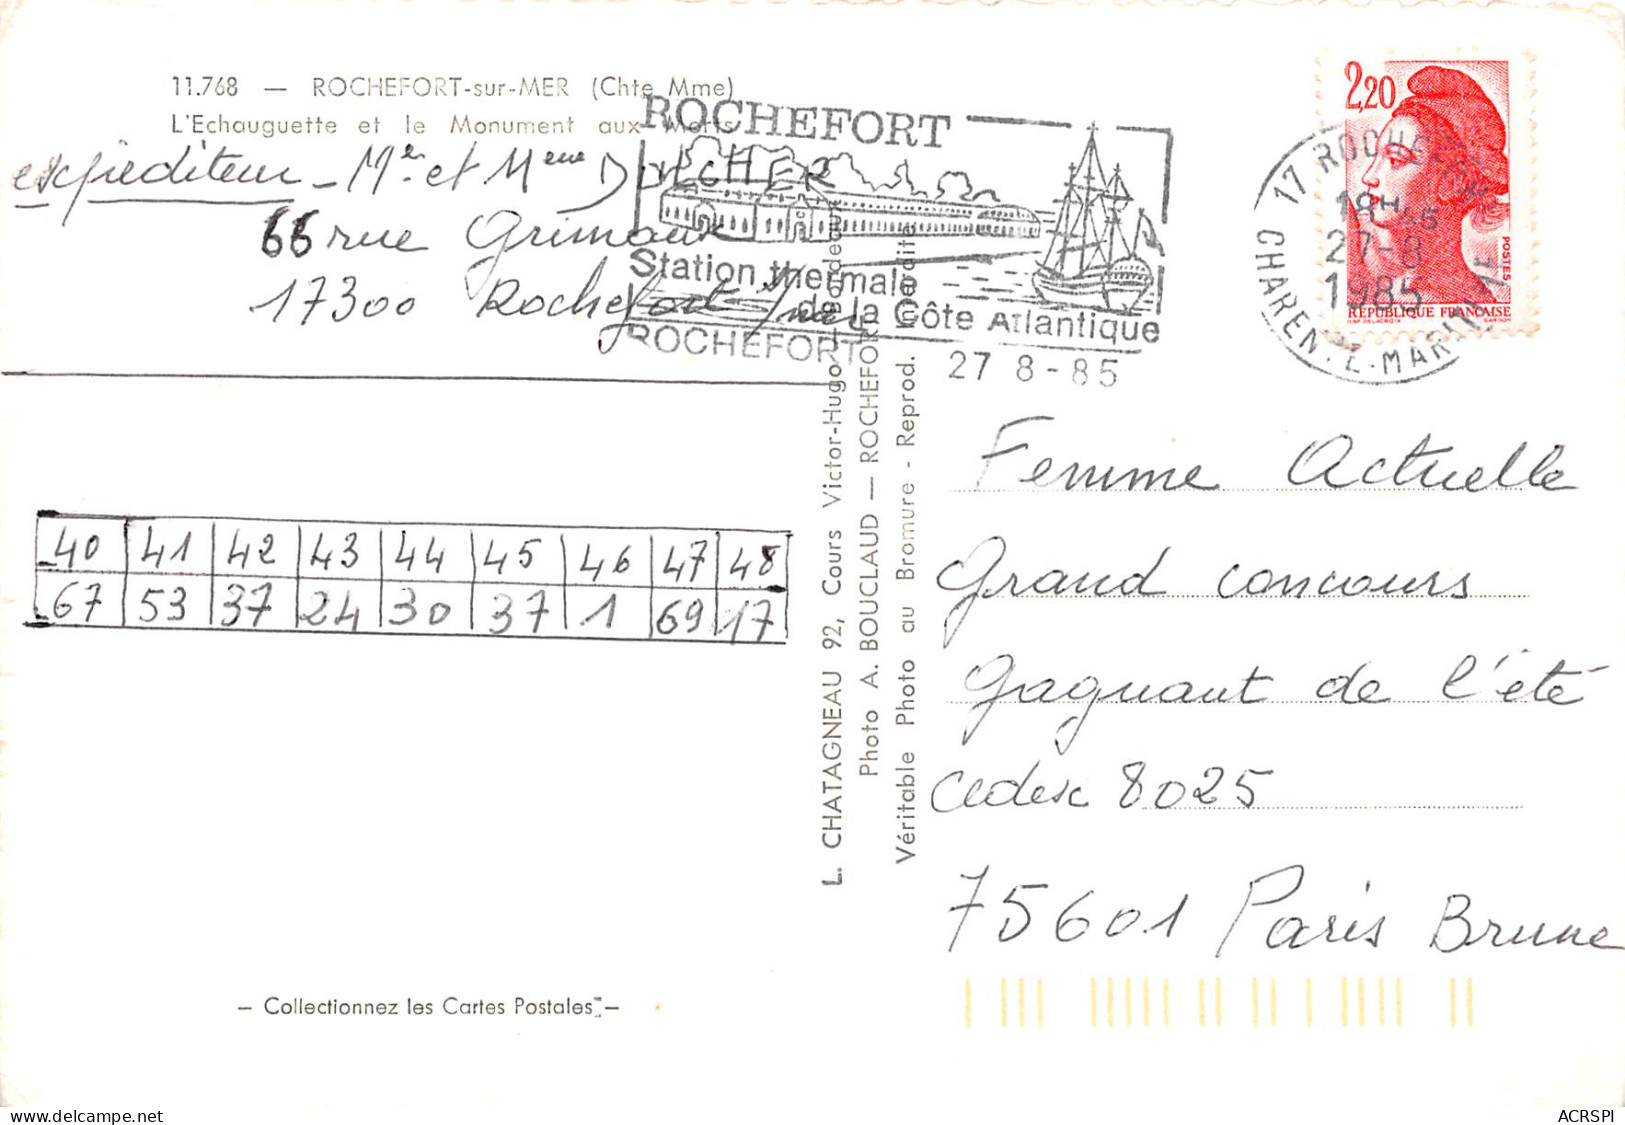 11.768 — ROCHEFORT-sur-MER (Chte Mme)
L'Echauguette et le Monument aux Morts
expéditeur - Mr et Mme
66 rue Grimaux
17300 Rochefort / mer
ROCHEFORT
Station thermale
de la Côte Atlantique
ROCHEFORT
27 8-85
2,20
POSTES
RÉPUBLIQUE FRANÇAISE
17 ROCHEFORT
18H45
27-8
1985
CHARENTE-MARITIME
40 41 42 43 44 45 46 47 48
67 53 37 24 30 37 1 69 17
L. CHATAGNEAU 92, Cours Victor-Hugo
Photo A. BOUCLAUD — ROCHEFORT
Véritable Photo au Bromure - Reprod. interdite
Femme Actuelle
Grand concours
gagnant de l'été
Cedex 8025
75601 Paris Brune
— Collectionnez les Cartes Postales —
www.delcampe.net
ACRSPI